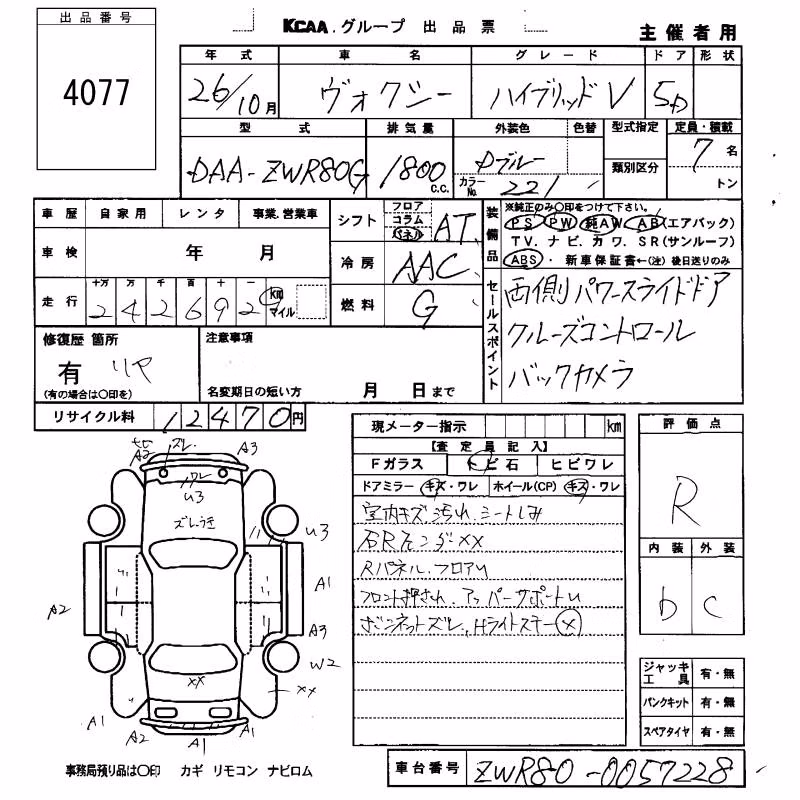 出品番号
4077
KCAA.グループ 出品票
主催者用
年式 車名 グレード ドア 形状
26/10月 ヴォクシー ハイブリッドV 5D
型式 排気量 外装色 色替 型式指定 定員・積載
DAA-ZWR80G 1800c.c. Dブルー 類別区分 7名
カラーNo. 221 トン
車歴 自家用 レンタ 事業.営業車
車検 年 月
走行 十万 万 千 百 十 一
242692 km マイル
シフト フロア コラム パネル AT
冷房 AAC
燃料 G
装備品
※純正のみ〇印をつけて下さい。
PS PW 純AW AB(エアバッグ)
TV. ナビ. カワ. SR(サンルーフ)
ABS ・ 新車保証書←(注) 後日送りのみ
セールスポイント
両側パワースライドドア
クルーズコントロール
バックカメラ
修復歴 箇所
有 リヤ
(有の場合は〇印を)
注意事項
名変期日の短い方 月 日まで
リサイクル料 12470円
現メーター指示 km
【査定員記入】
Fガラス トビ石 ヒビワレ
ドアミラー キズ・ワレ ホイール(CP) キズ・ワレ
室内キズ 汚れ.シートしみ
右Rフェンダーxx
Rパネル.フロアU
フロント押され.アッパーサポートU
ボンネットズレ,Hライトステー(x)
評価点
R
内装 外装
b c
ジャッキ工具 有・無
パンクキット 有・無
スペアタイヤ 有・無
A2 ズレ A3
ワレ
U3
ズレうき
U3
A1
A2
A3
W2
xx
xx
A1 A2 A1 A1
事務局預り品は〇印 カギ リモコン ナビロム
車台番号 ZWR80-0057228